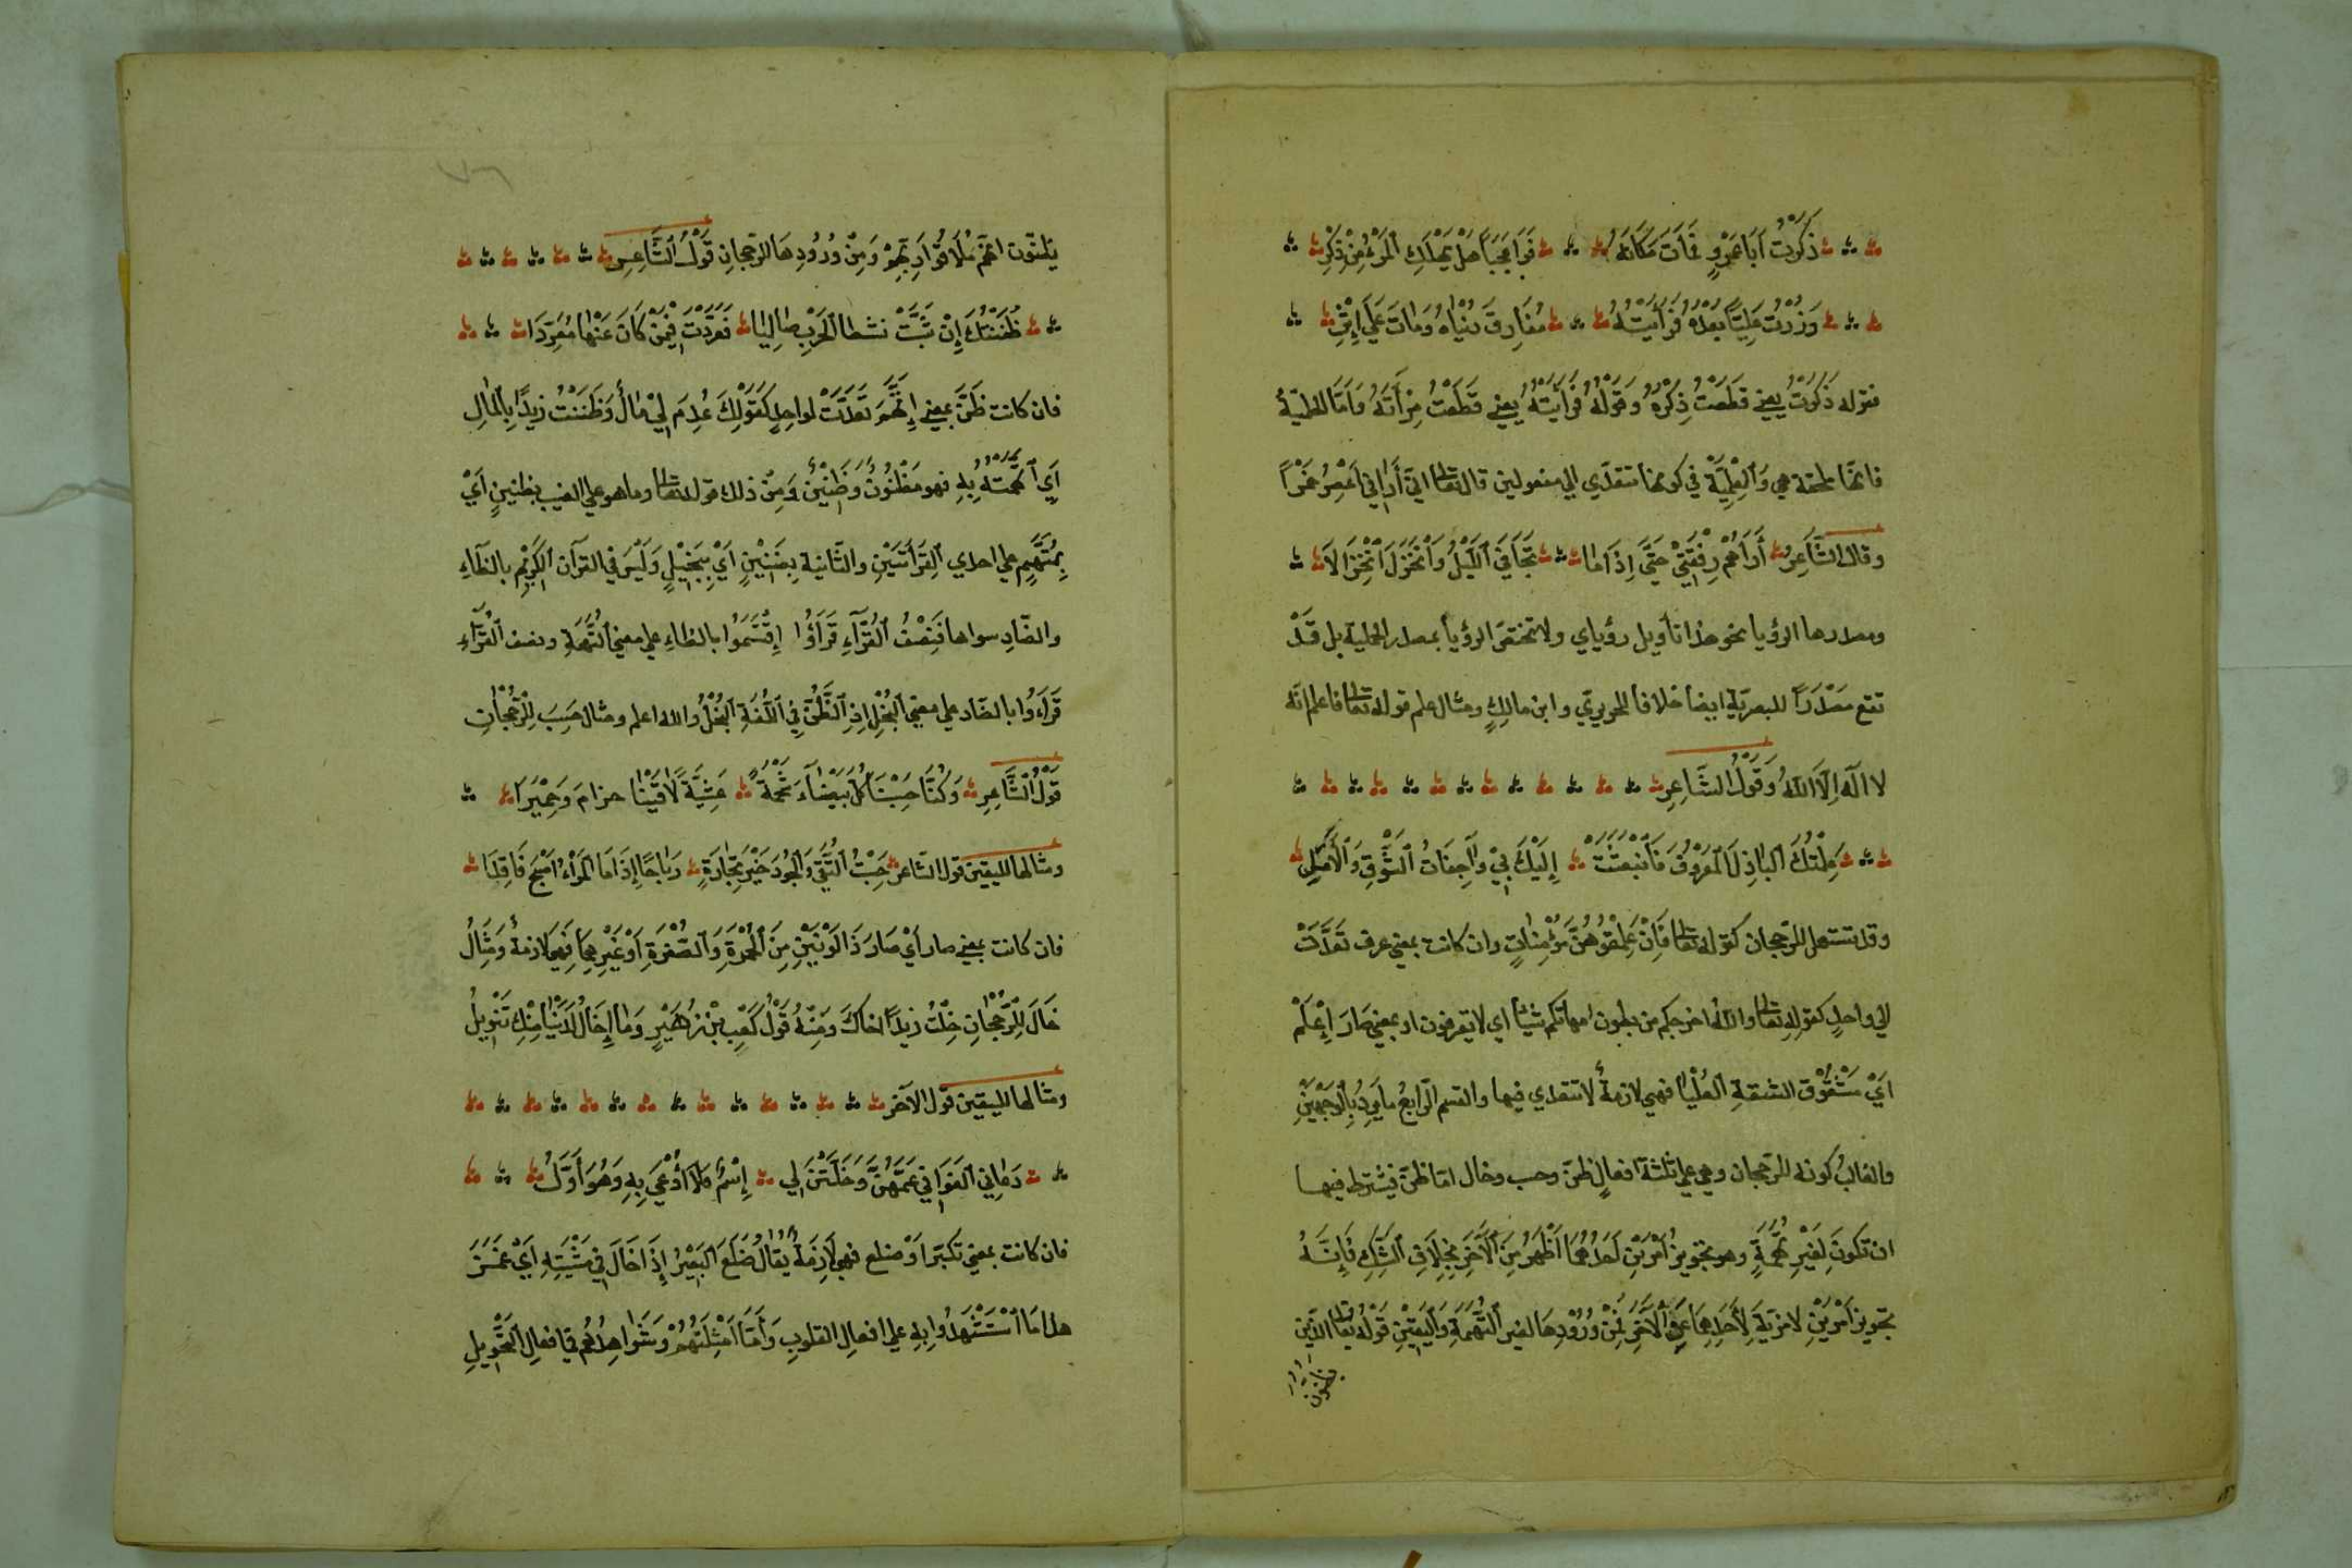 ذَكَرْتُ اَبَا عَمْرٍو فَمَاتَ مَكَانَهُ فَوَا عَجَبًا هَلْ يَهْلِكُ الْمَرْءُ مِنْ ذِكْرِ
وَزُرْتُ عَلِيًّا بَعْدَهُ فَرَأَيْتُهُ مُفَارِقَ دُنْيَاهُ وَمَاتَ عَلَى إِثْرِ
فقوله ذَكَرْتُ يعني قَطَعْتُ ذِكْرَهُ وَقَوْلُهُ فَرَأَيْتُهُ يعني قَطَعْتُ رِأَتَهُ وَاَمَّا
فانها ملحقة هي وَالْعِلْمِيَّة في كونها تتعدّي الي مفعولين قال تعالى اني أَرَاني اَعْصِرُ خَمْرًا
وقال الشَّاعِرُ أَرَاهُمْ رِفْقَتِي حَتَّى اِذَا مَا تَجَافَى اللَّيْلُ وَانْخَزَلَ انْخِزَالَا
ومصدرها الرؤيا نحو هذا تأويل رؤياي ولا تختص الرؤيا بمصدر الحلمية بل قَدْ
تقع مَصْدَرًا للبصريّة ايضا خلافا للحريري وابن مالكٍ ومثال علم قوله تعالى فاعلم انّه
لا اله اِلَّا اللهُ وَقَوْلُ الشَّاعِرِ
عَلِمْتُكَ الْبَاذِلَ الْمَعْرُوفَ فَانْبَعَثَتْ إِلَيْكَ بِي وَاجِفَاتُ الشَّوْقِ وَالْأَمَلِ
وقد تستعمل للرّجحان كقوله تعالى فَاِنْ عَلِمْتُمُوهُنَّ مُؤْمِنَاتٍ وان كانت بمعني عرف تَعَدَّتْ
الي واحدٍ كقوله تعالى والله اخرجكم من بطون امهاتكم شيئا اي لا تعرفون او بمعني صَارَ اِعْلَمَ
اَيْ مَشْقُوق الشفة الْعُلْيَا فهي لازمة لا تتعدي فيها والقسم الرّابعُ ما يَرِدُ بِالْوَجْهَيْنِ
والغالبُ كونه للرّجحان وهي علي ثلثة افعالٍ ظنّ وحسب وخال امّا ظنّ فيشترط فيهـا
ان تكونَ لِغَيْرِ تُهْمَةٍ وهو تجويزُ اَمْرَيْنِ اَحَدُهُمَا اَظْهَرُ مِنَ الْآخَرِ بِخِلَافِ الشَّكِّ فَاِنَّهُ
تجويز اَمْرَيْنِ لا مَزِيَّةَ لِأَحَدِهِمَا عَنِ الْآخَرِ فَمِنْ وُرُوْدِهَا لغير التُّهَمَةِ وَالْيَقِيْنِ قَوْلُهُ تعالى الّذين
يظنون
٧٦
يظنّون انهم مُلَاقُوا رَبِّهِمْ وَمِنْ وُرُودِهَا للرّجحانِ قَوْلُ الشَّاعِرِ
ظَنَنْتُكَ إِنْ شَبَّتْ لَظَى الْحَرْبِ صَالِيًا فَعَرَّدْتَ فِيْمَنْ كَانَ عَنْهَا مُعَرِّدَا
فان كانت ظَنَّ بمعني اِتَّهَمَ تَعَدَّتْ لواحِدٍ كَقَوْلِكَ عُدِمَ لِيْ مَالٌ وَظَنَنْتُ زيدًا بِالْمَالِ
اَيِ اتَّهَمْتُهُ بِهِ فهو مَظْنُونٌ وَظَنِيْنٌ وَمِنْ ذلك قوله تعالى وما هو علي الغيب بظنينٍ اَيْ
بِمُتَّهَمٍ علي احدي الْقِرَأَتَيْنِ والثَّانية بِضَنِيْنٍ اَيْ بِبَخِيْلٍ وَلَيْسَ في القرآن الكَرِيْمِ بالظَّاءِ
والضّادِ سواها فَنِصْفُ الْقُرَّآءِ قَرَأُوا بالظاءِ علي معني التُّهَمَةِ ونصف الْقُرَّآءِ
قَرَاءُوا بالضاد علي معني الْبُخْلِ اِذِ الضَّنُّ فِي اللُّغَةِ الْبُخْلُ والله اعلم ومثال حَسِبَ لِلرُّجْحَانِ
قَوْلُ الشَّاعِرِ وَكُنَّا حَسِبْنَا كُلَّ بَيْضَاءَ شَحْمَةً عَشِيَّةَ لَاقَيْنَا جذامَ وَحِمْيَرَا
ومثالها لليقين قول الشّاعر حَسِبْتُ التُّقَى وَالْجُودَ خَيْرَ تِجَارَةٍ رَبَاحًا إِذَا مَا الْمَرْءُ اَصْبَحَ ثَاقِلَا
فان كانت بمعني صار اَيْ صَارَ ذَا لَوْنَيْنِ مِنَ الْحُمْرَةِ وَالصُّفْرَةِ اَوْ غَيْرِهِمَا فَهِيَ لازمةٌ وَمِثَالُ
خَالَ لِلرُّجْحَانِ خِلْتُ زيدًا اخاكَ وَمِنْهُ قَوْلُ كَعْبِ بْنِ زُهَيْرٍ وَمَا إِخَالُ لَدَيْنَا مِنْكِ تَنْوِيلُ
ومثالها لليقين قول الآخر
دَعَانِي الْغَوَانِي عَمَّهُنَّ وَخِلْتُنِي لِي إِسْمٌ فَلَا اُدْعَى بِهِ وَهُوَ اَوَّلُ
فان كانت بمعني تكبّر اَوْ ضلع فهي لَازِمَةٌ يُقَالُ ضَلَعَ الْبَعِيْرُ إِذَا خَالَ فِي مَشْيَتِهِ اَيْ غَمَـزَ
هذا مَا اسْتَشْهَدُوا بِهِ علي افعال القلوبِ وَأَمَّا اَمْثِلَتُهُمْ وَشَوَاهِدُهُمْ في افعال التَّحْوِيلِ